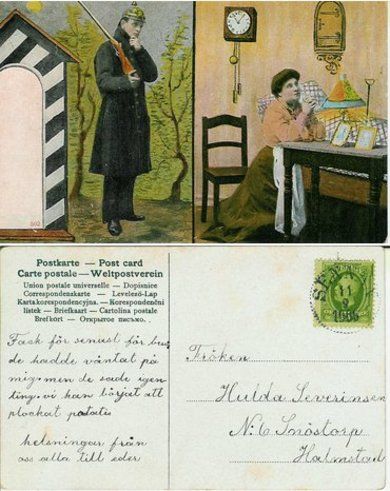 Postkarte — Post card
Carte postale — Weltpostverein
Union postale universelle — Dopisnice
Correspondenzkarte — Levelező-Lap
Karta korespondencyjna. — Korespondenční
listek — Briefkaart — Cartolina postale
Brefkort — Открытое письмо.
Tack för senast för
de hadde väntat på
mig. men de sade igen-
ting. vi han börjat att
plockat potatis
helsningar från
oss alla till eder
Fröken
Hulda Severinsen
N:6 Snöstorp
Halmstad
11
9